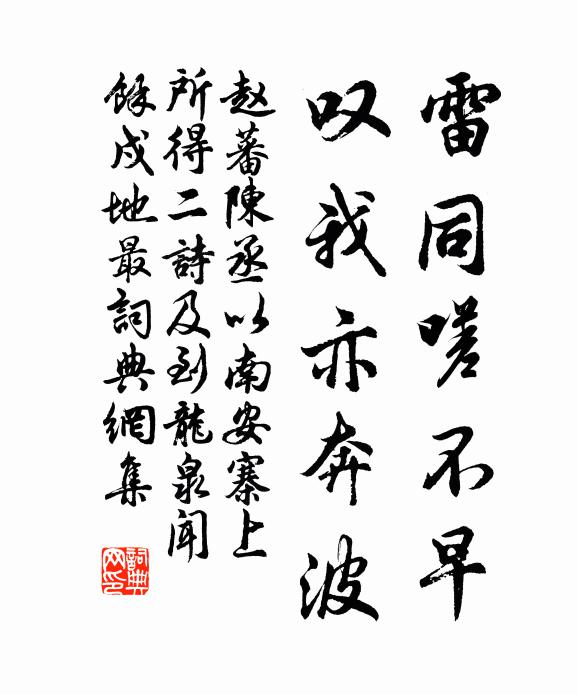 雷同嗟不早
叹我亦奔波
赵蕃陳丞以南安寨上
所得二詩及到龍泉闻
餘戍地最詞典網集
詞典网印